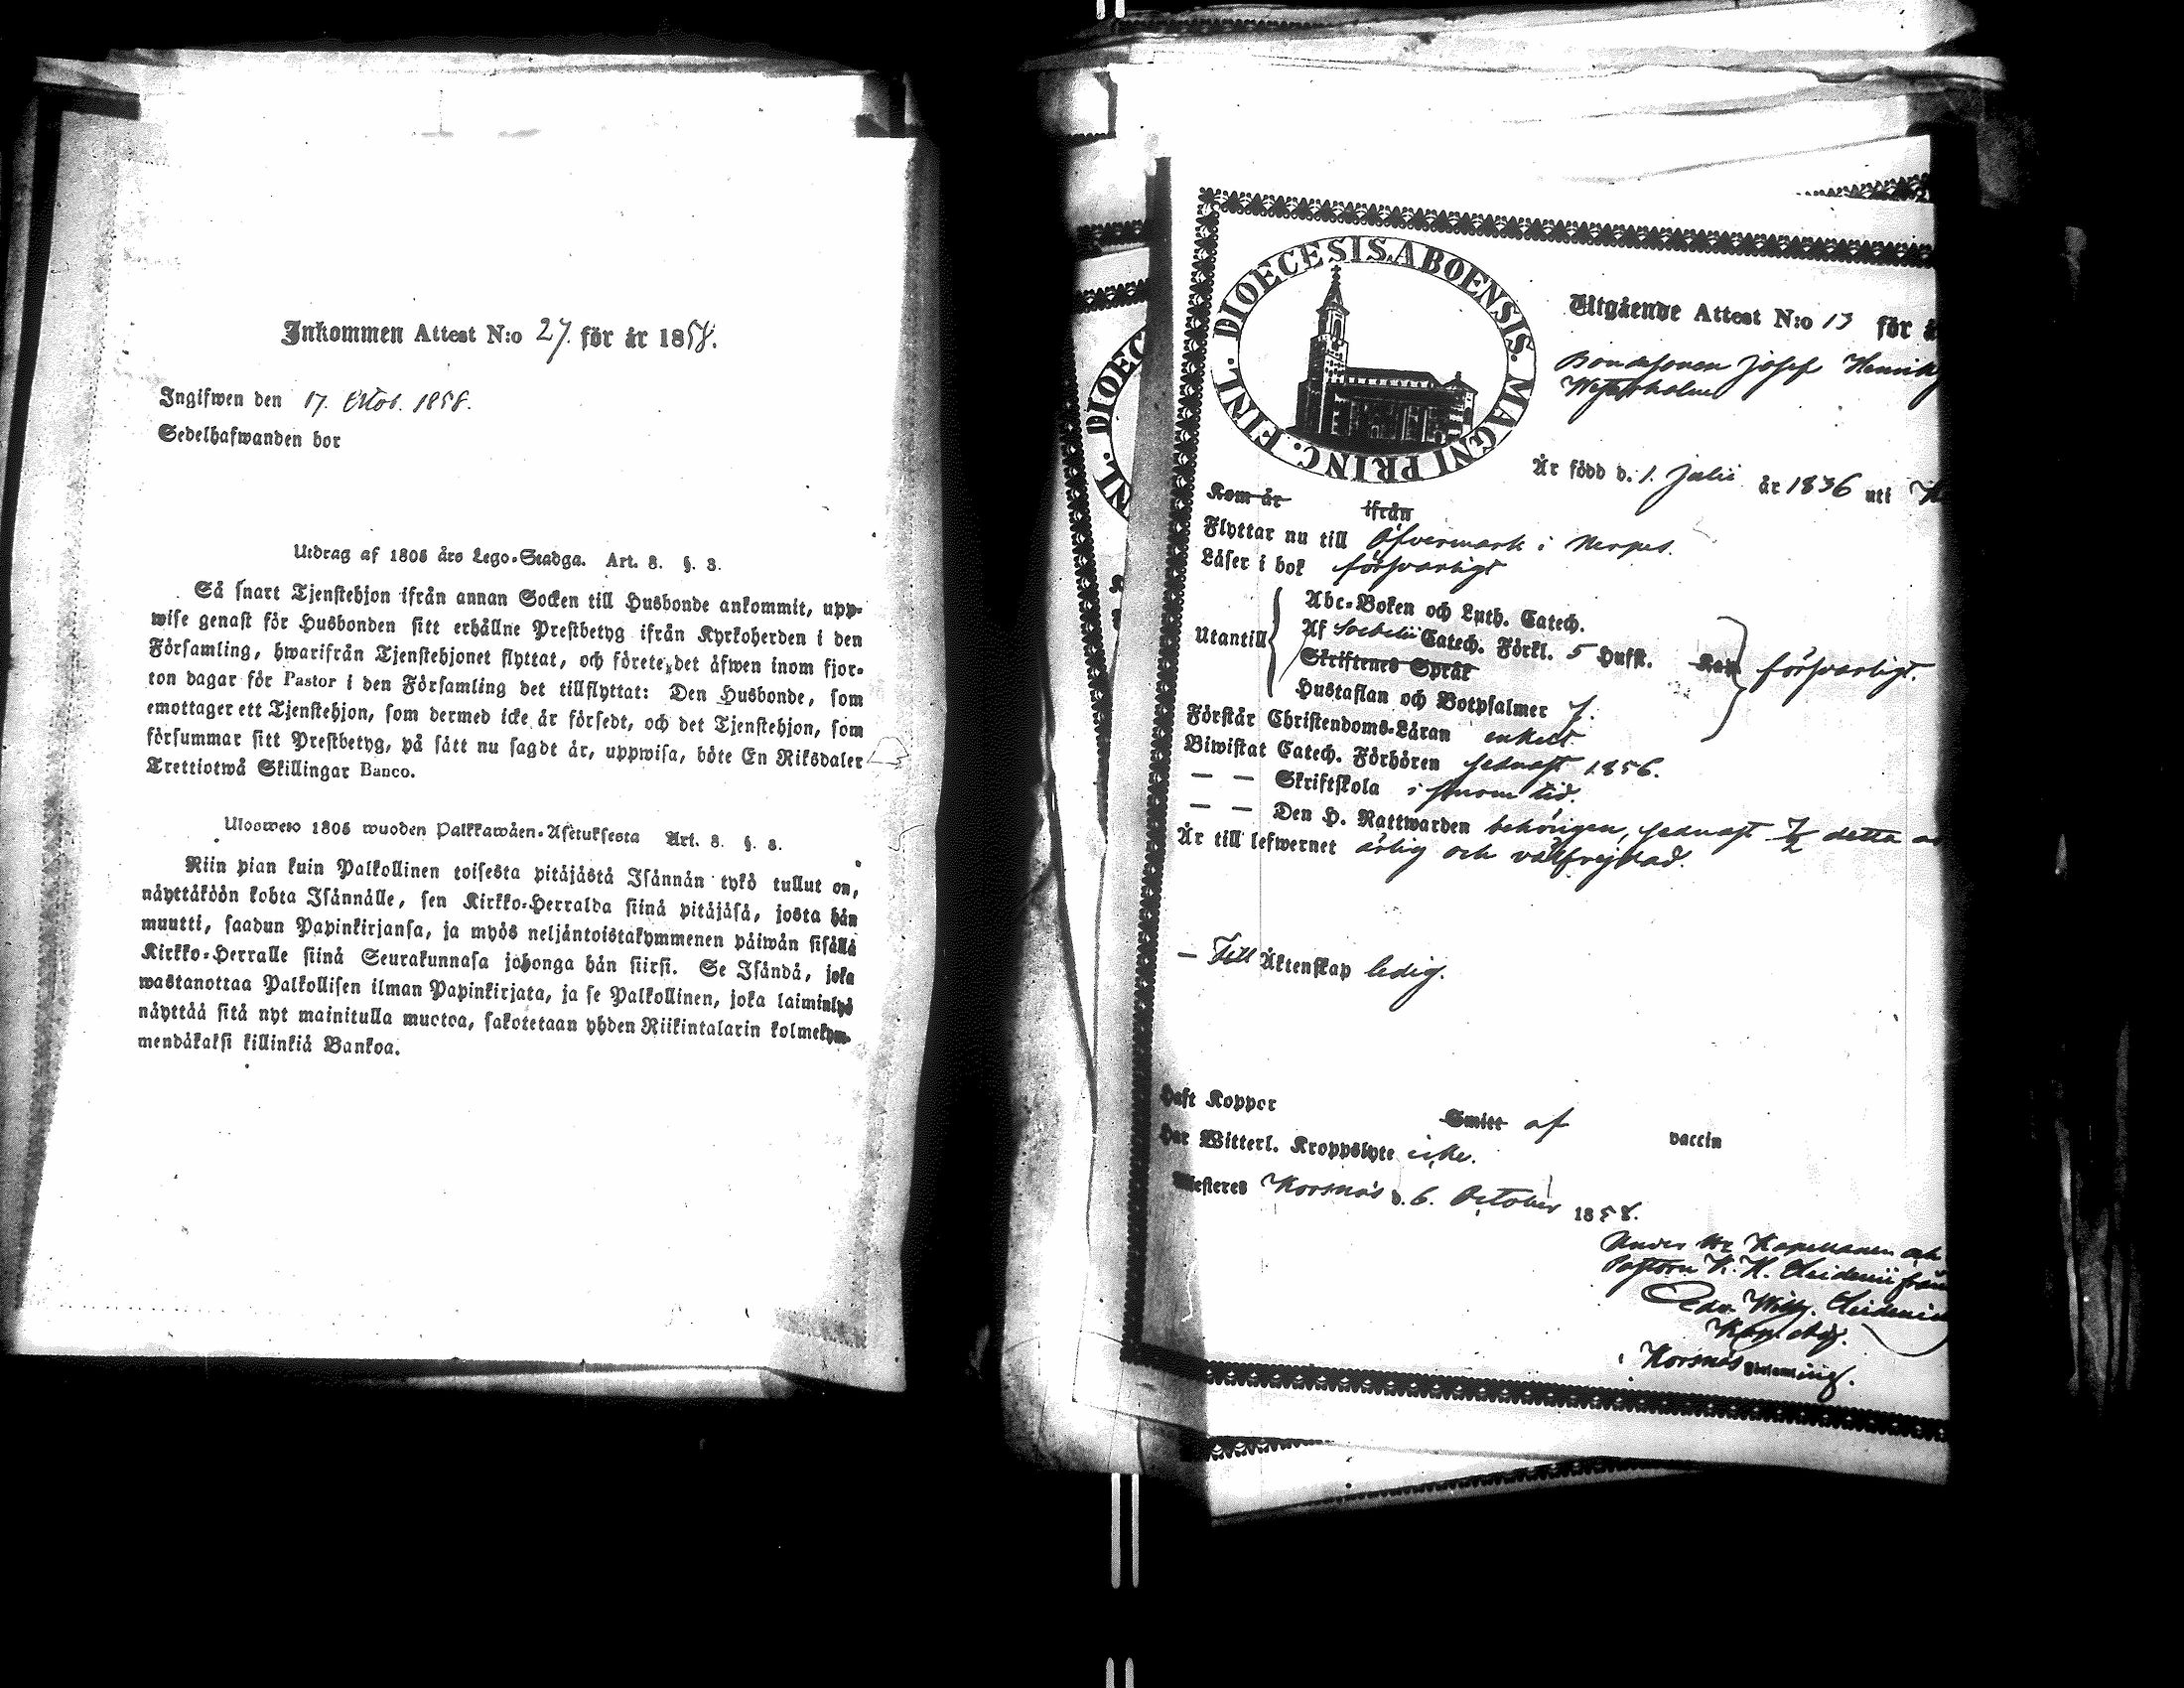 Inkommen Attest N:o 27. för år 1858.
Ingifwen den 17. Octob. 1858.
Sedelhafwanden bor
Utdrag af 1805 års Lego-Stadga. Art. 8. §. 3.
Så snart Tjenstehjon ifrån annan Socken till Husbonde ankommit, upp-
wise genast för Husbonden sitt erhållne Prestbetyg ifrån Kyrkoherden i den
Församling, hwarifrån Tjenstehjonet flyttat, och förete det åfwen inom fjor-
ton dagar för Pastor i den Församling det tillflyttat: Den Husbonde, som
emottager ett Tjenstehjon, som dermed icke är försedt, och det Tjenstehjon, som
försummar sitt Prestbetyg, på sätt nu sagdt är, uppwisa, böte En Riksdaler
Trettiotwå Skillingar Banco.
Ulosweto 1805 wuoden Palkkawäen-Asetuksesta Art. 8. §. 3.
Niin pian kuin Palkollinen toisesta pitäjästä Isännän tykö tullut on,
näyttäköön kohta Isännälle, sen Kirkko-Herralda siinä pitäjäsä, josta hän
muutti, saadun Papinkirjansa, ja myös neljäntoistakymmenen päiwän sisällä
Kirkko-Herralle siinä Seurakunnasa johonga hän siirsi. Se Isändä, joka
wastanottaa Palkollisen ilman Papinkirjata, ja se Palkollinen, joka laiminlyö
näyttää sitä nyt mainitulla muotoa, sakotetaan yhden Riikintalarin kolmekym-
mendäkaksi killinkiä Bankoa.
DIOECESIS ABOENSIS. MAGNI PRINC. FINL.
Utgående Attest N:o 13 för å
Bondesonen Josef Henriks
Westerholm
Är född d. 1. Julii år 1836 uti
Kom år ifrån
Flyttar nu till Öfvermark i Nerpes.
Läser i bok försvarligt
Abc-Boken och Luth. Catech.
Utantill Af Sebelii Catech. Förkl. 5 Hufst. Kan försvarligt.
Skriftenes Språk
Hustaflan och Botpsalmer 7.
Förstår Christendoms-Läran enkelt
Biwistat Catech. Förhören sednast 1856.
— — Skriftskola i sinom tid.
— — Den H. Nattwarden behörigen, sednast detta
Är till lefwernet ärlig och välfrejdad.
— Till Äktenskap ledig.
Haft Koppor Smitt af vaccin
Har Witterl. Kroppslyte icke.
Korsnäs d. 6. October 1858.
Under Hr Kapellanen och
Pastorn K. H. Heidenii från
Edv. Wilh. Heidenius
Kapl. adj.
Korsnäs